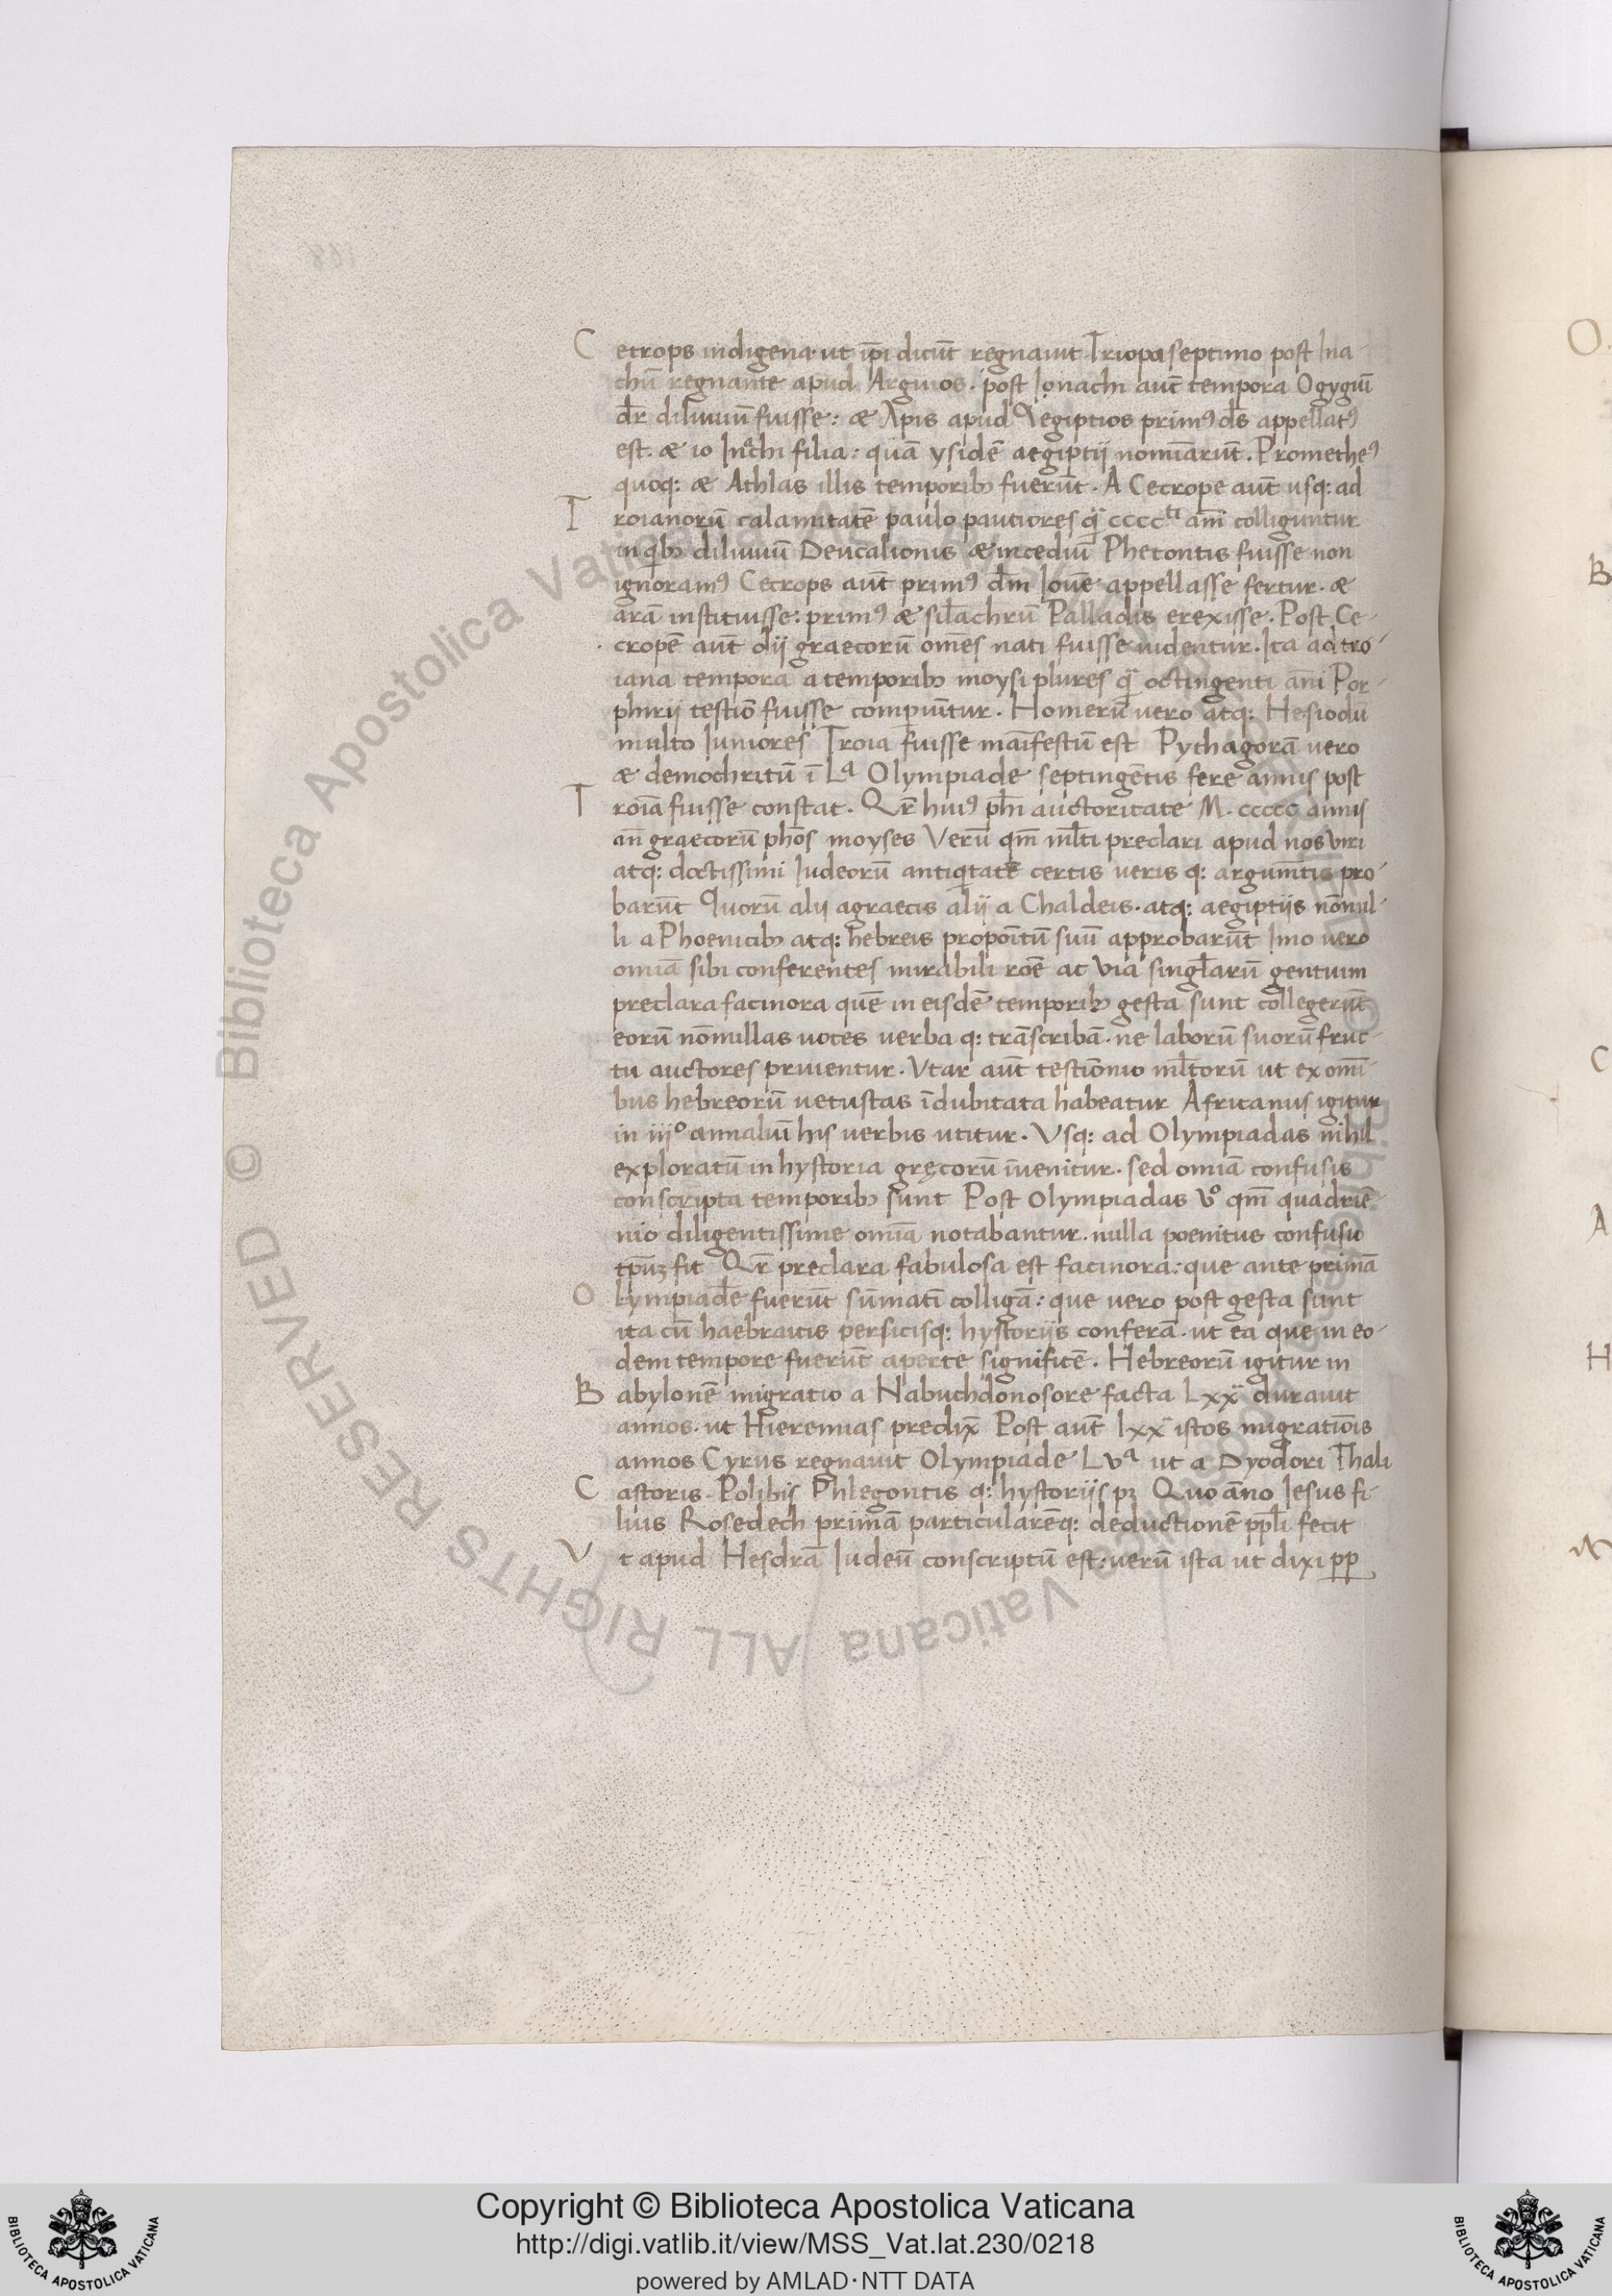 Cecrops indigena. ut ip̄i dicūt regnauit Triopa septimo post Ina-
chū regnante apud Argiuos. post Ionachi aut̄ tempora Ogygiū
dr̄ diluuiū fuisse: æ Apis apud Aegiptios primꝰ ds̄ appellatꝰ
est. æ io Inachi filia: quā ysidē aegiptij nomīarūt. Prometheꝰ
quoq: æ Athlas illis temporibꝫ fuerūt. A Cecrope aut̄ usq: ad
Troianorū calamitatē paulo pautiores qͣ̈ cccc^ti an̄i colliguntur
in qͥbꝫ diluuiū Deucalionis æ incediū Phetontis fuisse non
ignoramꝰ Cecrops aut̄ primꝰ dm̄ Iouē appellasse fertur. æ
arā instituisse: primꝰ æ sil̄achrū Palladis erexisse. Post Ce-
cropē aut̄ dij graecorū om̄es nati fuisse uidentur. Ita ad tro-
iana tempora a temporibꝫ moysi plures qͣ̈ octingenti an̄i Por-
phirij testiō fuisse compuūtur. Homerū vero atq: Hesiodū
multo Iuniores Troia fuisse maīfestū est Pythagorā vero
æ demochritū ī Lª Olympiade septingētis fere annis post
Troiā fuisse constat. Qr̄ huiꝰ ph̄i auctoritate M. ccccc annis
an̄ graecorū phōs moyses Verū qm̄ ml̄ti preclari apud nos viri
atq: doctissimi Iudeorū antiqͥtatē certis ueris q: argum̄tis pro-
barūt Quorū alij agraecis alij a Chaldeis. atq: aegiptijs nōnul-
li a Phoenicibꝫ atq: hebreis propoītū suū approbarūt Imo uero
omīa sibi conferentes mirabili roē ac via singl̄arū gentium
preclara facinora quē in eisdē temporibꝫ gesta sunt collegerūt
eorū nōnullas uoces uerba q: trāscribā. ne laborū suorū fruc-
tu auctores priuentur. Vtar aut̄ testiōnio ml̄torū ut ex omī-
bus hebreorū uetustas īdubitata habeatur Africanus igitur
in iij° annaliū his uerbis utitur. Vsq: ad Olympiadas nihil
exploratū in hystoria gręcorū īuenitur. sed omīa confusis
conscripta temporibꝫ sunt Post Olympiadas v° qm̄ quadriē-
nio diligentissime omīa notabantur. nulla poenitus confusio
tp̄uꝫ fit Qr̄ preclara fabulosa est facinora: que ante primā
Olympiadē fuerūt sūmatī colligā: que uero post gesta sunt
ita cū haebraicis persicisq: hystorijs conferā. ut ea que in eo-
dem tempore fuerūt aperte significē. Hebreorū igitur in
Babylonē migratio a Nabuchdonosore facta Lxx^a durauit
annos. ut Hieremias predix̄ Post aut̄ lxx^a istos migratiōis
annos Cyrus regnauit Olympiade Lvª ut a Dyodori Thali
Castoris. Polibij Phlegontis q: hystorijs pꝫ Quo āno Iesus fi-
lius Rosedech primā particularēq: deductionē ppl̄i fecit
Vt apud Hesdrā Iudeū conscriptū est: uerū ista ut dixi pp
Copyright © Biblioteca Apostolica Vaticana
http://digi.vatlib.it/view/MSS_Vat.lat.230/0218
powered by AMLAD·NTT DATA